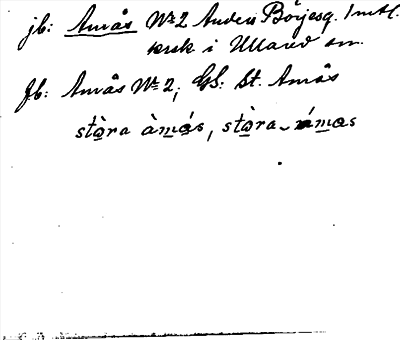 jb: Amås № 2 Anders Börjesg. 1 mtl.
i Ullared sn.
Jb: Amås № 2, GS: St. Amås
stòra àmås, stòra-åmås